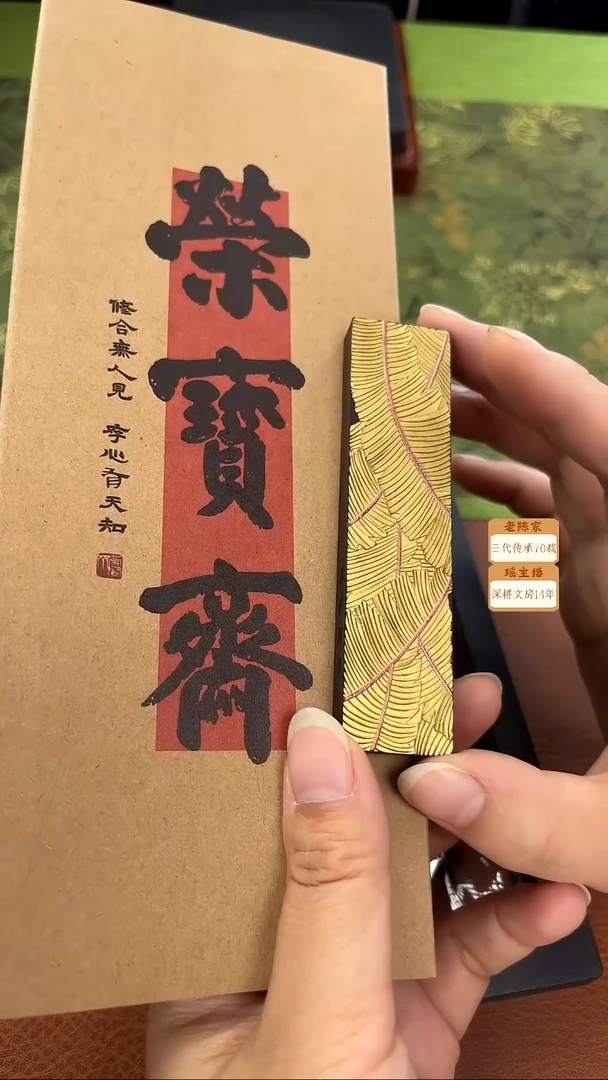 榮寶齋
修合無人見 存心有天知
老陈家
三代传承70载
瑶主播
深耕文房14年